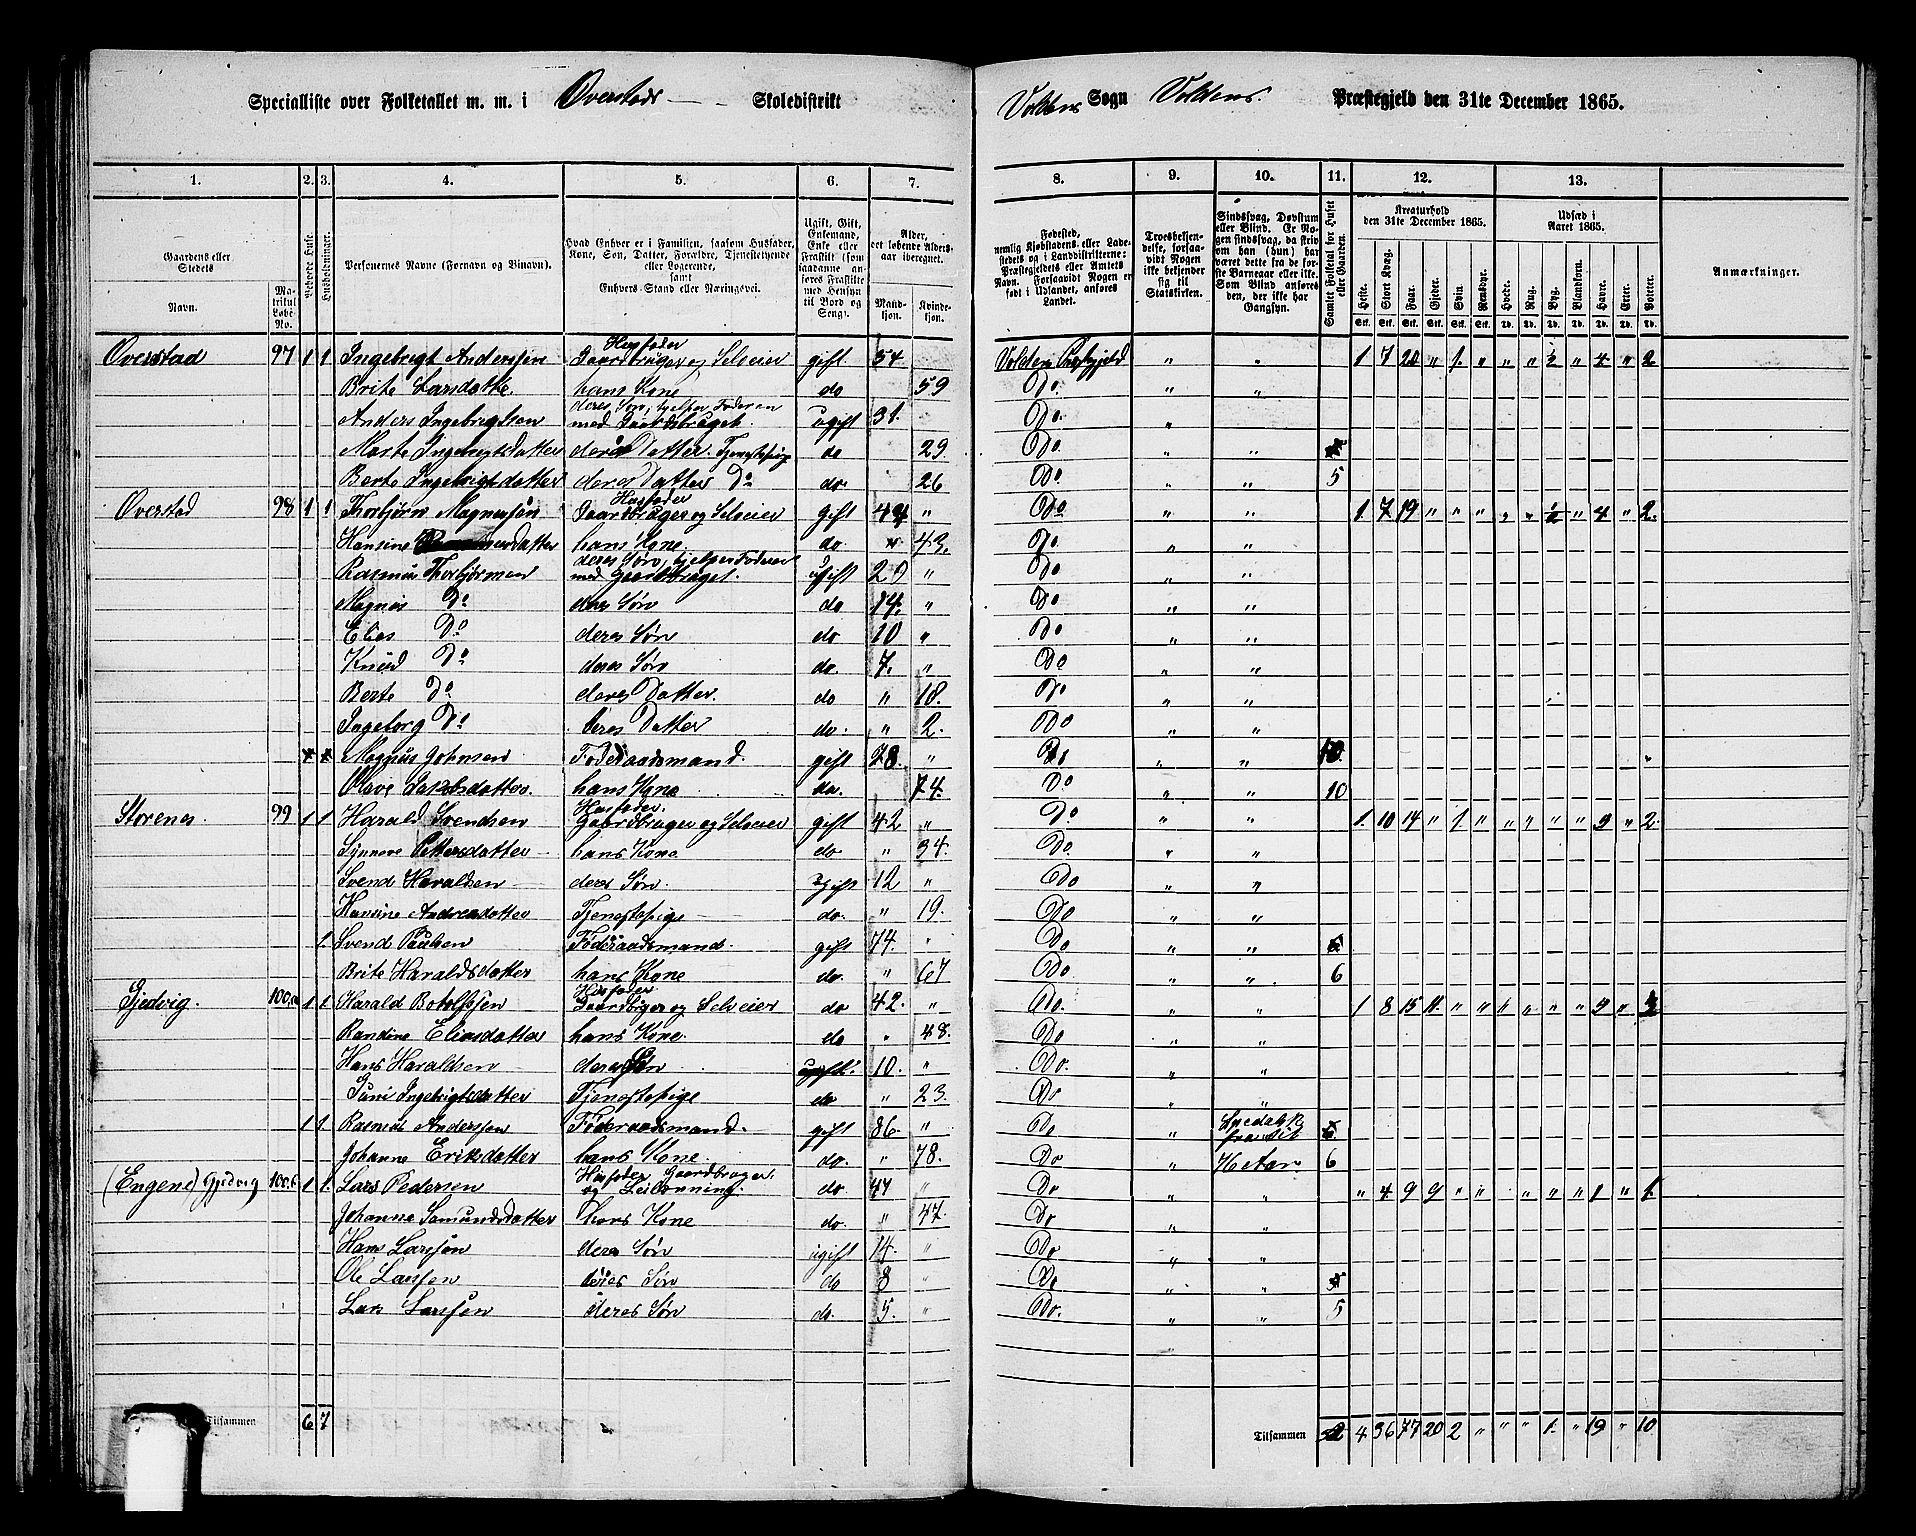 Specialliste over Folketallet m. m. i Overstads Skoledistrikt
Voldens Sogn Voldens Præstegjeld den 31te December 1865.
1. 2. 3. 4. 5. 6. 7. 8. 9. 10. 11. 12. 13.
Gaardens eller Stedets
Navn.
Matrikul Løbe No.
Bebœde Huse.
Husholdninger.
Personernes Navne (Fornavn og Binavn).
Hvad Enhver er i Familien, saasom Husfader, Kone, Søn, Datter, Forældre, Tjenestetyende eller Logerende,
samt
Enhvers Stand eller Næringsvei.
Ugift, Gift, Enkemand, Enke eller Fraskilt (som saadanne anføres Fraskilte med Hensyn til Bord og Seng).
Alder, det løbende Alders-aar iberegnet.
Mandkjøn. Kvindekjøn.
Fødested, nemlig Kjøbstadens eller Ladestedets og i Landdistrikterne: Præstegjeldets eller Amtets Navn. Er Nogen født i Udlandet, anføres Landet.
Troesbekjendelse, forsaavidt Nogen ikke bekjender sig til Statskirken.
Sindssvag, Døvstum eller Blind. Er Nogen sindssvag, da skriv om han (hun) har været dette fra de første Barneaar eller ikke. Som Blind anføres den, der ikke har Gangsyn.
Samlet Folketal for Huset eller Gaarden.
Kreaturhold den 31te December 1865.
Heste. Stort Kvæg. Faar. Gjeder. Svin. Rensdyr.
Udsæd i Aaret 1865.
Hvede. Rug. Byg. Blandkorn. Havre. Erter. Poteter.
Anmærkninger.
Overstad 97 1 1 Ingebrigt Anderssen Husfader Gaardbruger og Selveier gift 54. Voldens Præstgjeld " " 1. 7 20 " 1. " " " ½ " 4 " 2
Brite Larsdatte. hans Kone do 59 Do. " "
Anders Ingebrigtsen deres Søn, hjelper Faderen med Gaardsbruget. ugift 31. Do. "
Marte Ingebrigtsdatter deres Datter. Tjenestepige do 29 Do " "
Berte Ingebrigtdatter deres Datter Do do 26 Do " " 5
Overstad 98 1 1 Thorbjørn Magnussøn Husfader Gaardbruger og Selveier gift 44 " Do " " 1. 7 19 " " " " " ½ " 4 " 2.
Hansine datter hans Kone do " 43. Do " "
Rasmus Thorbjørnsen deres Søn, hjelper Faderen med Gaardbruget. ugift 20 " Do " "
Magnus Do deres Søn do 14. " Do " "
Elias Do deres Søn do 10 " Do " "
Knud Do deres Søn do. 7. " Do " "
Berte Do deres Datter. do " 18. Do " "
Ingeborg Do deres Datter do. " 2. Do " "
Magnus Johnsen Føderaadsmand. gift 78. " Do " "
Olave Jakobsdatter. hans Kone do. 74. Do " " 10
Storenes 99 1 1 Harald Svendsen Husfader. Gaardbruger og Selveier gift 42 " Do " " 1. 10 14 " 1. " " " " " 9 " 2.
Synneve Pettersdatter hans Kone do " 34. Do " "
Svend Haraldsen deres Søn. ugift 12 " Do " "
Hansine Andreasdatter Tjenestepige do. " 19. Do " "
1. Svend Paulsen Føderaadsmand. gift 74. " Do " "
Brite Haraldsdatter hans Kone do. " 67 Do " " 6
Gjedvig. 100.a 1 1. Harald Botolfssen Husfader Gaardbruger og Selveier do 42. " Do. " " 1 8 15 11. " " " " " " 9 "
Randine Eliasdatter hans Kone. do " 48. Do " "
Hans Haraldsen deres Søn ugift. 10. " Do. " "
Ingebrigtsdatter Tjenestepige do " 23. Do " "
1 1. Rasmus Anderssen Føderaadsmand. gift 86. " Do " Spedalsk
Johanne Eriksdatter hans Kone. do. " 78. Do " 6
(Engene) Gjedvig 100.b 1 1. Lars Pedersen Husfader Gaardbruger og Leilænning. do. 47 " Do " " " 4 9 9 " " " " " 1 " 1.
Johanne Samundsdatter hans Kone do. " 47. Do " "
Hans Larssøn deres Søn ugift 14. " Do " "
Ole Larssen deres Søn do 8 " Do " "
Lars Larssøn deres Søn do. 5. " Do. " " 5
Tilsammen 6 7
Tilsammen 4 36 77 20 2 " " " 1. " 19 " 10